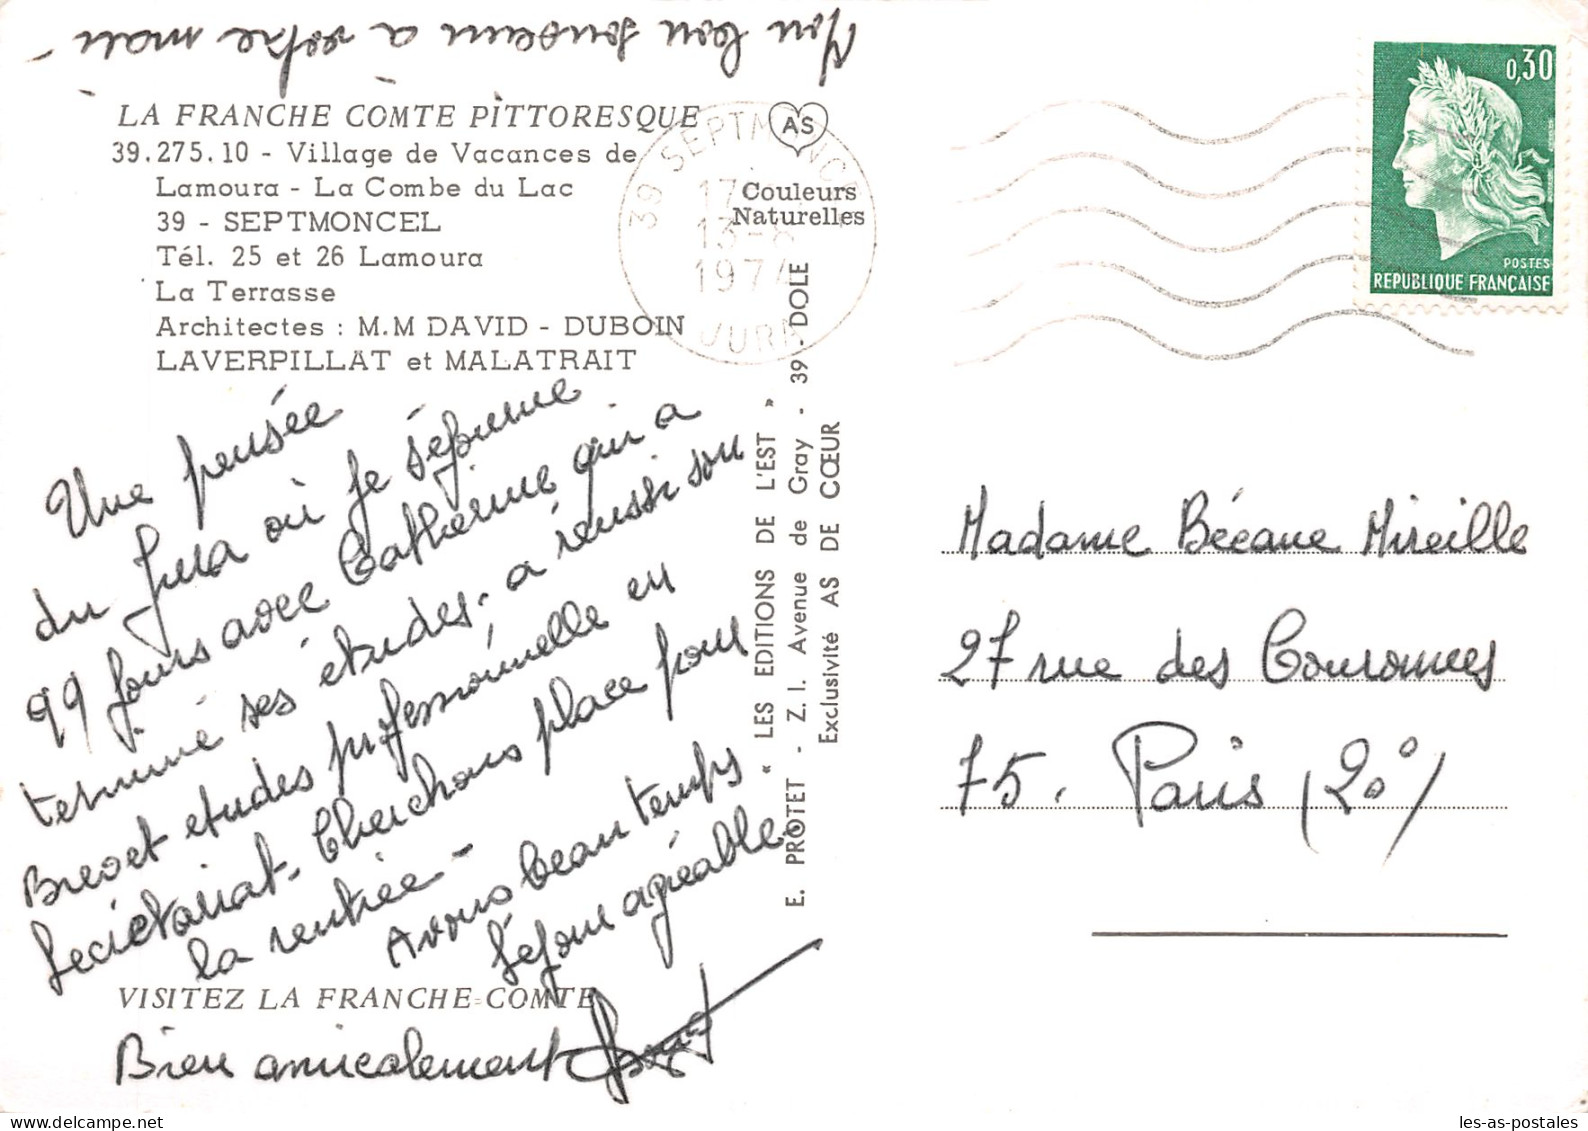 Mon bon souvenir à votre mari -
LA FRANCHE COMTE PITTORESQUE
39.275.10 - Village de Vacances de
Lamoura - La Combe du Lac
39 - SEPTMONCEL
Tél. 25 et 26 Lamoura
La Terrasse
Architectes : M.M DAVID - DUBOIN
LAVERPILLAT et MALATRAIT
AS
Couleurs
Naturelles
39 SEPTMONCEL
17
13-8
1974
JURA
0,30
POSTES
REPUBLIQUE FRANÇAISE
Une pensée
du Jura où je séjourne
qq jours avec Catherine qui a
terminé ses études; a réussi son
Brevet etudes professionnelle en
Secrétariat. Cherchons place pour
la rentrée -
Avons beau temps
Séjour agréable.
VISITEZ LA FRANCHE-COMTE
Bien amicalement
E. PROTET - « LES EDITIONS DE L'EST »
Z. I. Avenue de Gray - 39 - DOLE
Exclusivité AS DE CŒUR
Madame Bécane Mireille
27 rue des Couronnes
75. Paris (20°)
les-as-postales